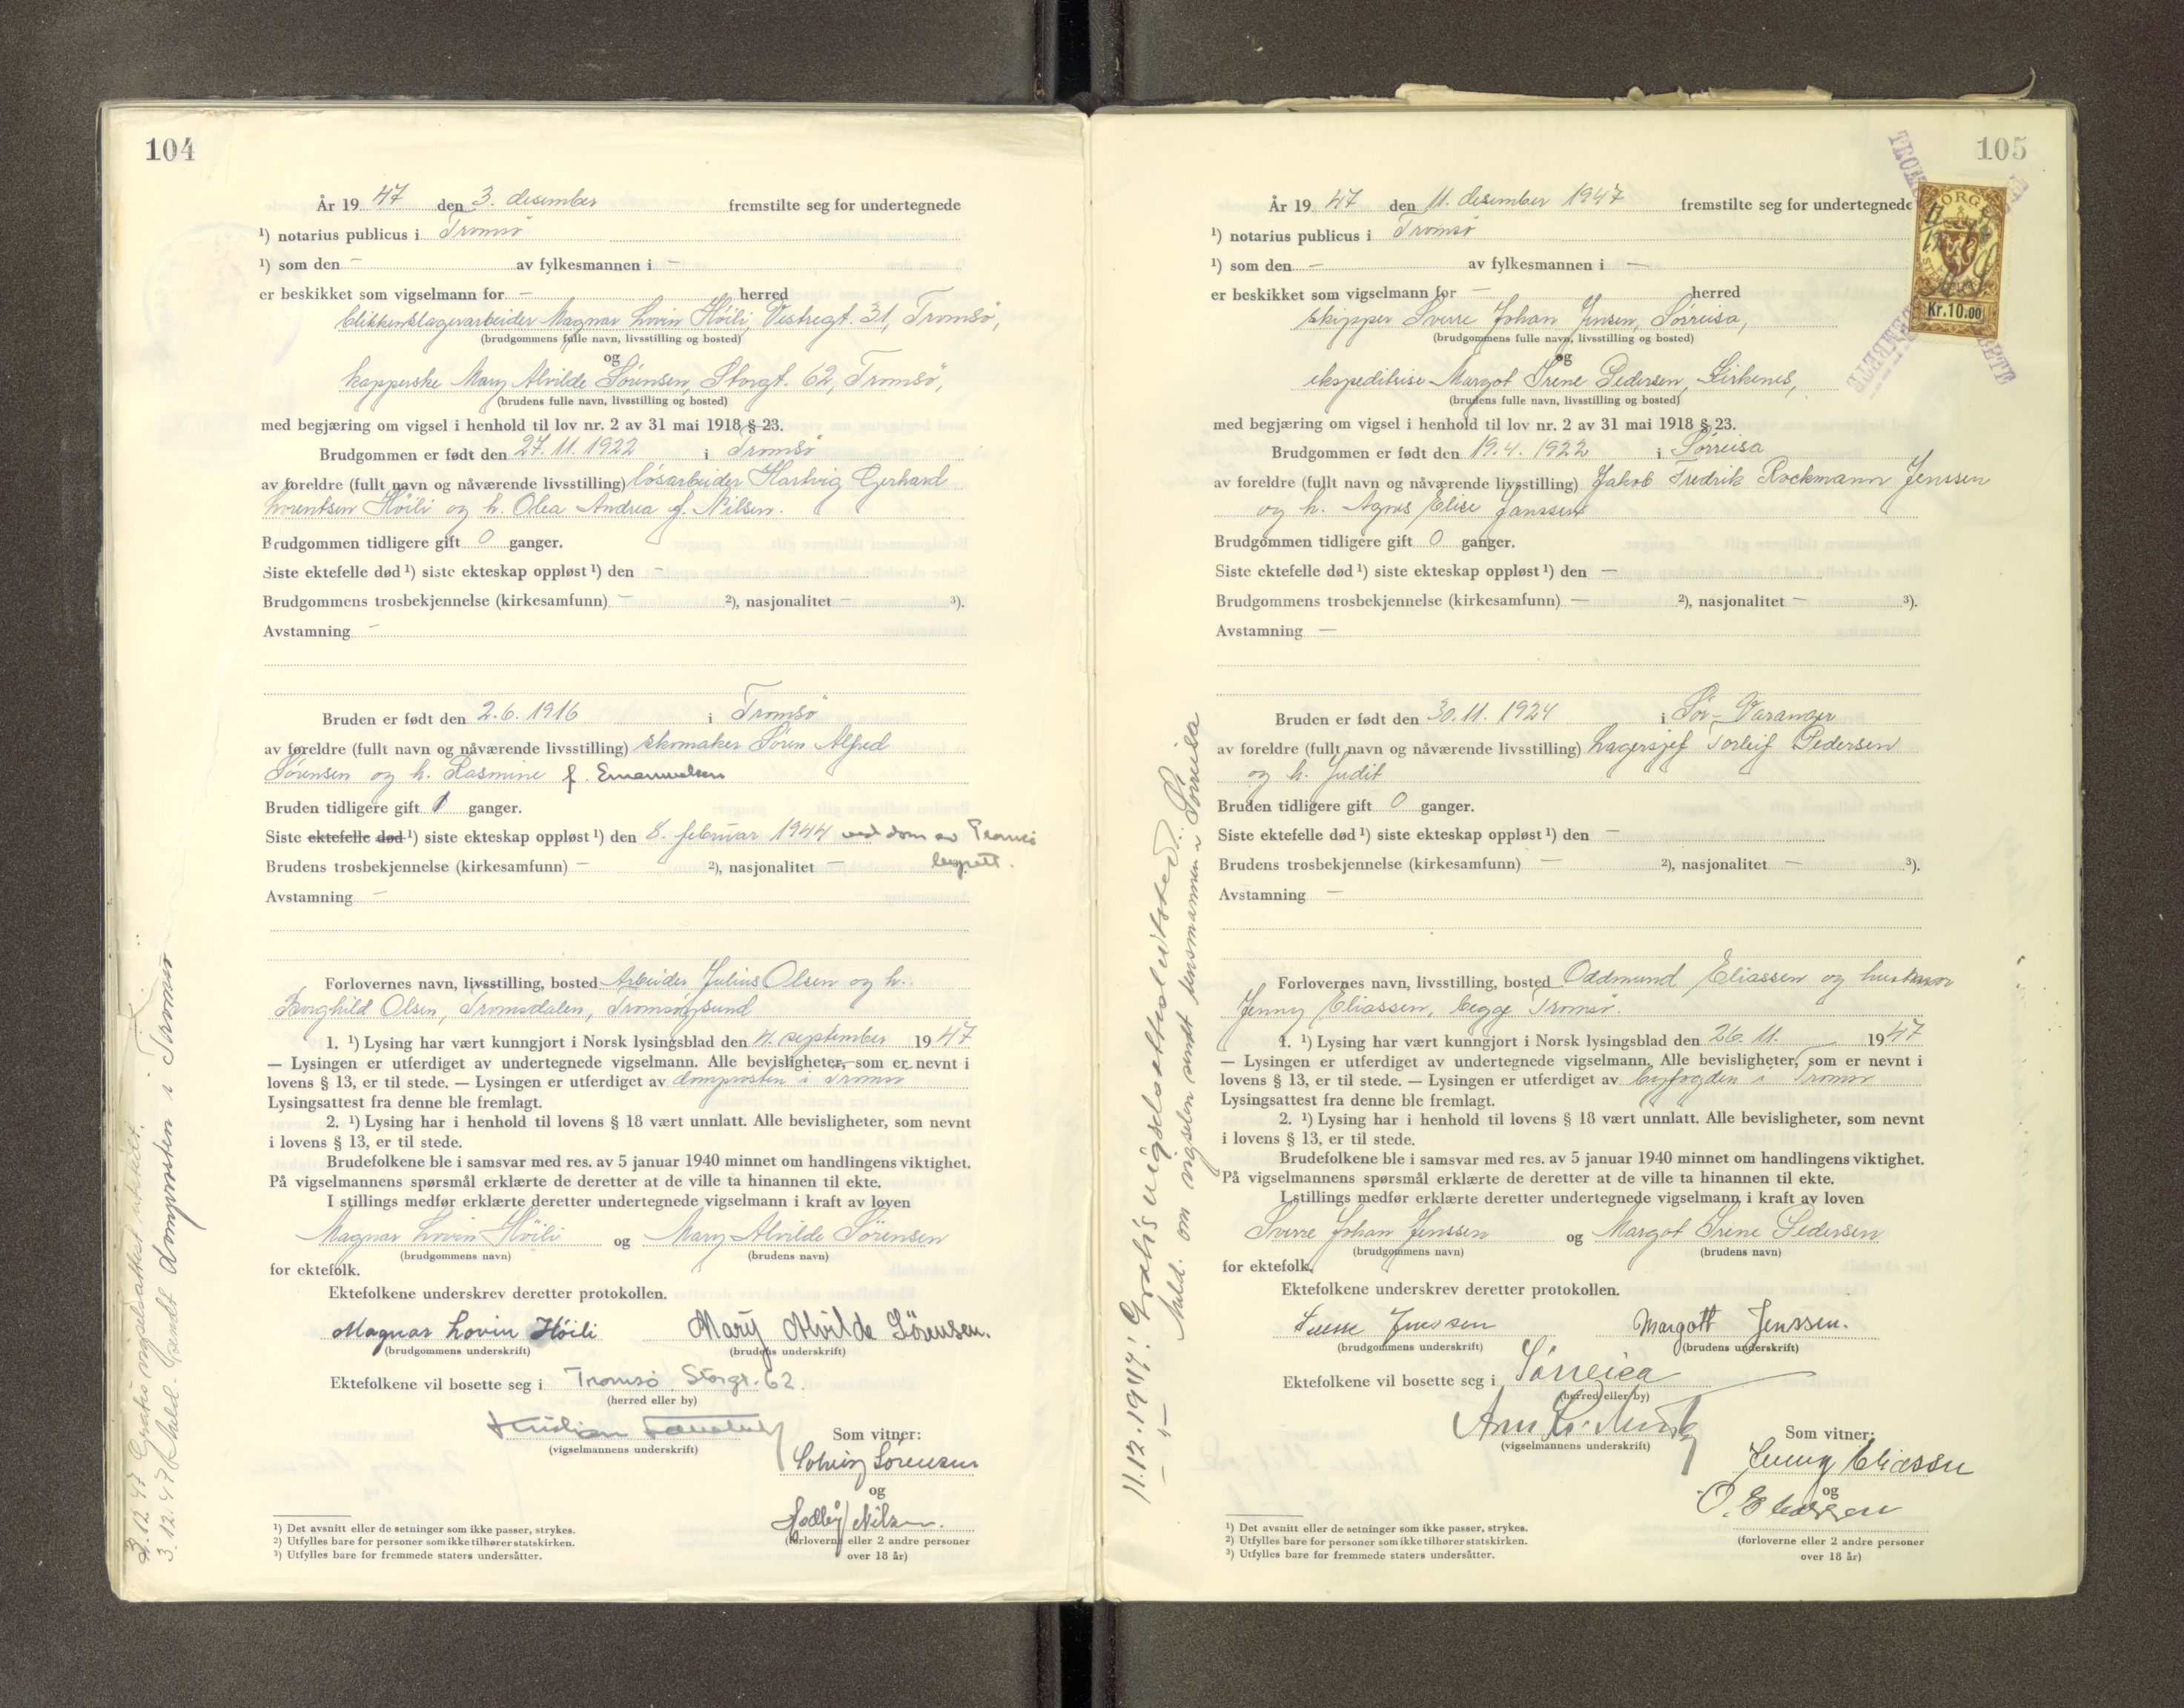 104
År 19 47 den 3. desember fremstilte seg for undertegnede
¹) notarius publicus i Tromsö
¹) som den – av fylkesmannen i –
er beskikket som vigselmann for – herred
blikkenslagerarbeider Magnar Lovin Höili, Vestregt. 31, Tromsö,
(brudgommens fulle navn, livsstilling og bosted)
og
kapperske Mary Alvilde Sörensen, Storgt. 62, Tromsö,
(brudens fulle navn, livsstilling og bosted)
med begjæring om vigsel i henhold til lov nr. 2 av 31 mai 1918 § 23.
Brudgommen er født den 27. 11. 1922 i Tromsö
av foreldre (fullt navn og nåværende livsstilling) lösarbeider Hartvig Gerhard
Lorentsen Höili og h. Olea Andrea f. Nilsen.
Brudgommen tidligere gift 0 ganger.
Siste ektefelle død ¹) siste ekteskap oppløst ¹) den –
Brudgommens trosbekjennelse (kirkesamfunn) – ²), nasjonalitet – ³).
Avstamning –
Bruden er født den 2. 6. 1916 i Tromsö
av foreldre (fullt navn og nåværende livsstilling) skomaker Sören Alfred
Sörensen og h. Rasmine f. Emanuelsen
Bruden tidligere gift 1 ganger.
Siste ektefelle død ¹) siste ekteskap oppløst ¹) den 8. februar 1944 ved dom av Tromsö
byrett.
Brudens trosbekjennelse (kirkesamfunn) – ²), nasjonalitet –
Avstamning –
Forlovernes navn, livsstilling, bosted Arbeider Julius Olsen og h.
Borghild Olsen, Tromsdalen, Tromsöysund
1. ¹) Lysing har vært kunngjort i Norsk lysingsblad den 4. september 19 47
— Lysingen er utferdiget av undertegnede vigselmann. Alle bevisligheter, som er nevnt i
lovens § 13, er til stede. — Lysingen er utferdiget av domprosten i Tromsö
Lysingsattest fra denne ble fremlagt.
2. ¹) Lysing har i henhold til lovens § 18 vært unnlatt. Alle bevisligheter, som nevnt
i lovens § 13, er til stede.
Brudefolkene ble i samsvar med res. av 5 januar 1940 minnet om handlingens viktighet.
På vigselmannens spørsmål erklærte de deretter at de ville ta hinannen til ekte.
I stillings medfør erklærte deretter undertegnede vigselmann i kraft av loven
Magnar Lovin Höili og Mary Alvilde Sörensen
(brudgommens navn) (brudens navn)
for ektefolk.
Ektefolkene underskrev deretter protokollen.
Magnar Lovin Höili Mary Alvilde Sörensen.
(brudgommens underskrift) (brudens underskrift)
Ektefolkene vil bosette seg i Tromsö Storgt. 62.
(herred eller by)
Kristian
(vigselmannens underskrift)
Som vitner:
Solveig Sörensen
og
Nilsen.
(forloverne eller 2 andre personer
over 18 år)
¹) Det avsnitt eller de setninger som ikke passer, strykes.
²) Utfylles bare for personer som ikke tilhører statskirken.
³) Utfylles bare for fremmede staters undersåtter.
3. 12. 47 Gratis vigselsattest utstedt.
3. 12. 47 Meld. sendt domprosten i Tromsö
105
År 19 47 den 11. desember 1947 fremstilte seg for undertegnede
¹) notarius publicus i Tromsö
¹) som den – av fylkesmannen i –
er beskikket som vigselmann for – herred
skipper Sverre Johan Jensen, Sörreisa,
(brudgommens fulle navn, livsstilling og bosted)
og
ekspeditrise Margot Irene Pedersen, Kirkenes,
(brudens fulle navn, livsstilling og bosted)
med begjæring om vigsel i henhold til lov nr. 2 av 31 mai 1918 § 23.
Brudgommen er født den 19. 4. 1922 i Sörreisa
av foreldre (fullt navn og nåværende livsstilling) Jakob Fredrik Rockmann Jenssen
og h. Agnes Elise Janssen
Brudgommen tidligere gift 0 ganger.
Siste ektefelle død ¹) siste ekteskap oppløst ¹) den —
Brudgommens trosbekjennelse (kirkesamfunn) — ²), nasjonalitet – ³).
Avstamning —
Bruden er født den 30. 11. 1924 i Sör-Varanger
av foreldre (fullt navn og nåværende livsstilling) Lagersjef Torleif Pedersen
og h. Judit
Bruden tidligere gift 0 ganger.
Siste ektefelle død ¹) siste ekteskap oppløst ¹) den —
Brudens trosbekjennelse (kirkesamfunn) — ²), nasjonalitet – ³).
Avstamning –
Forlovernes navn, livsstilling, bosted Oddmund Eliassen og hustru
Jenny Eliassen, begge Tromsö.
1. ¹) Lysing har vært kunngjort i Norsk lysingsblad den 26. 11. 19 47
— Lysingen er utferdiget av undertegnede vigselmann. Alle bevisligheter, som er nevnt i
lovens § 13, er til stede. — Lysingen er utferdiget av byfogden i Tromsö
Lysingsattest fra denne ble fremlagt.
2. ¹) Lysing har i henhold til lovens § 18 vært unnlatt. Alle bevisligheter, som nevnt
i lovens § 13, er til stede.
Brudefolkene ble i samsvar med res. av 5 januar 1940 minnet om handlingens viktighet.
På vigselmannens spørsmål erklærte de deretter at de ville ta hinannen til ekte.
I stillings medfør erklærte deretter undertegnede vigselmann i kraft av loven
Sverre Johan Jenssen og Margot Irene Pedersen
(brudgommens navn) (brudens navn)
for ektefolk.
Ektefolkene underskrev deretter protokollen.
Sverre Jenssen Margott Jenssen.
(brudgommens underskrift) (brudens underskrift)
Ektefolkene vil bosette seg i Sörreisa
(herred eller by)
(vigselmannens underskrift)
Som vitner:
Jenny Eliassen
og
O. Eliassen
(forloverne eller 2 andre personer
over 18 år)
¹) Det avsnitt eller de setninger som ikke passer, strykes.
²) Utfylles bare for personer som ikke tilhører statskirken.
³) Utfylles bare for fremmede staters undersåtter.
11.12.1947: Gratis vigselsattest utstedt.
— " — Meld. om vigselen sendt lensmannen i Sörreisa
NORGE
Kr. 10.00